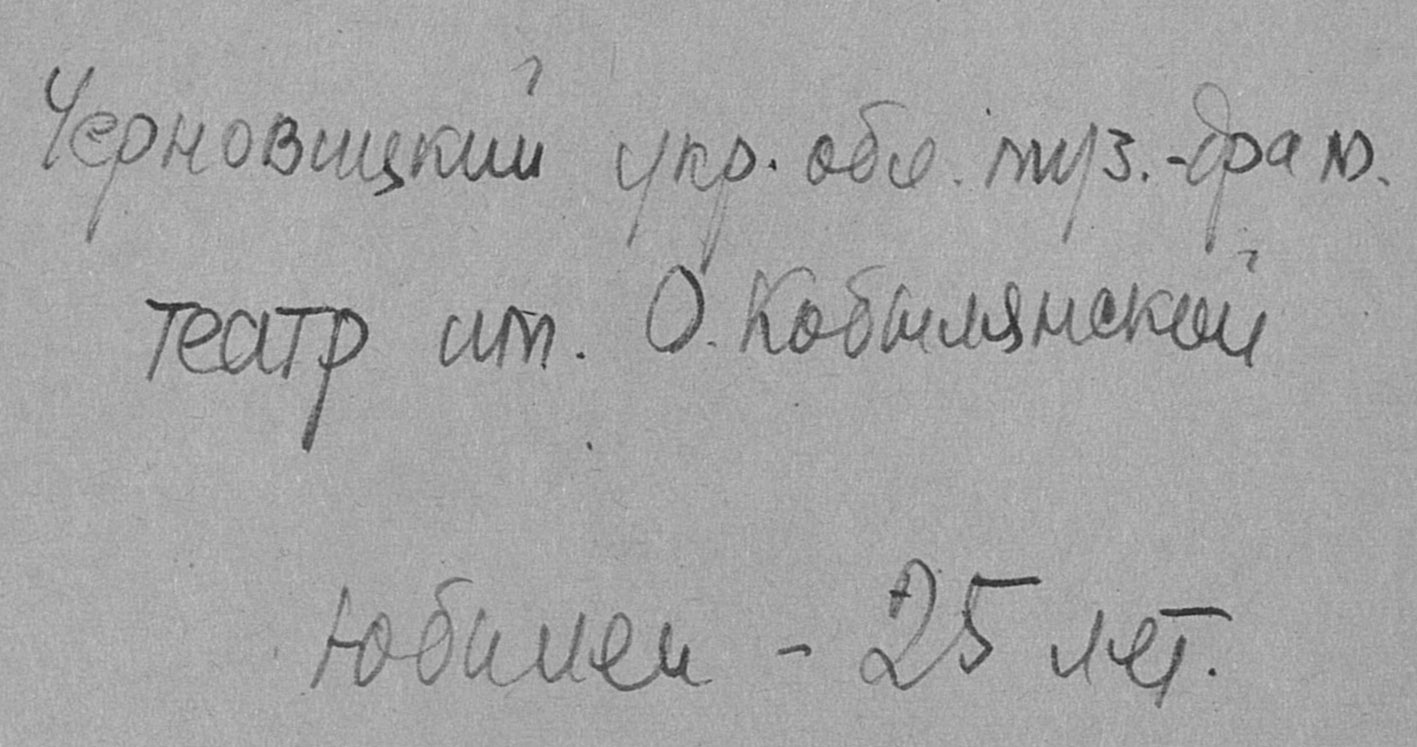 Черновицкий укр. обл. муз.-драм.
театр им. О. Кобилянской
Юбилей - 25 лет.